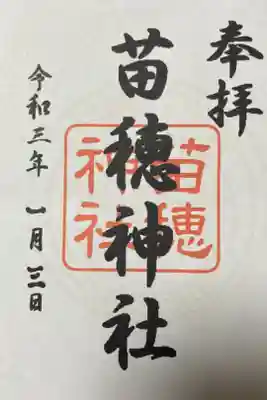 奉拝
苗穂神社
苗穂神社
令和三年一月三日